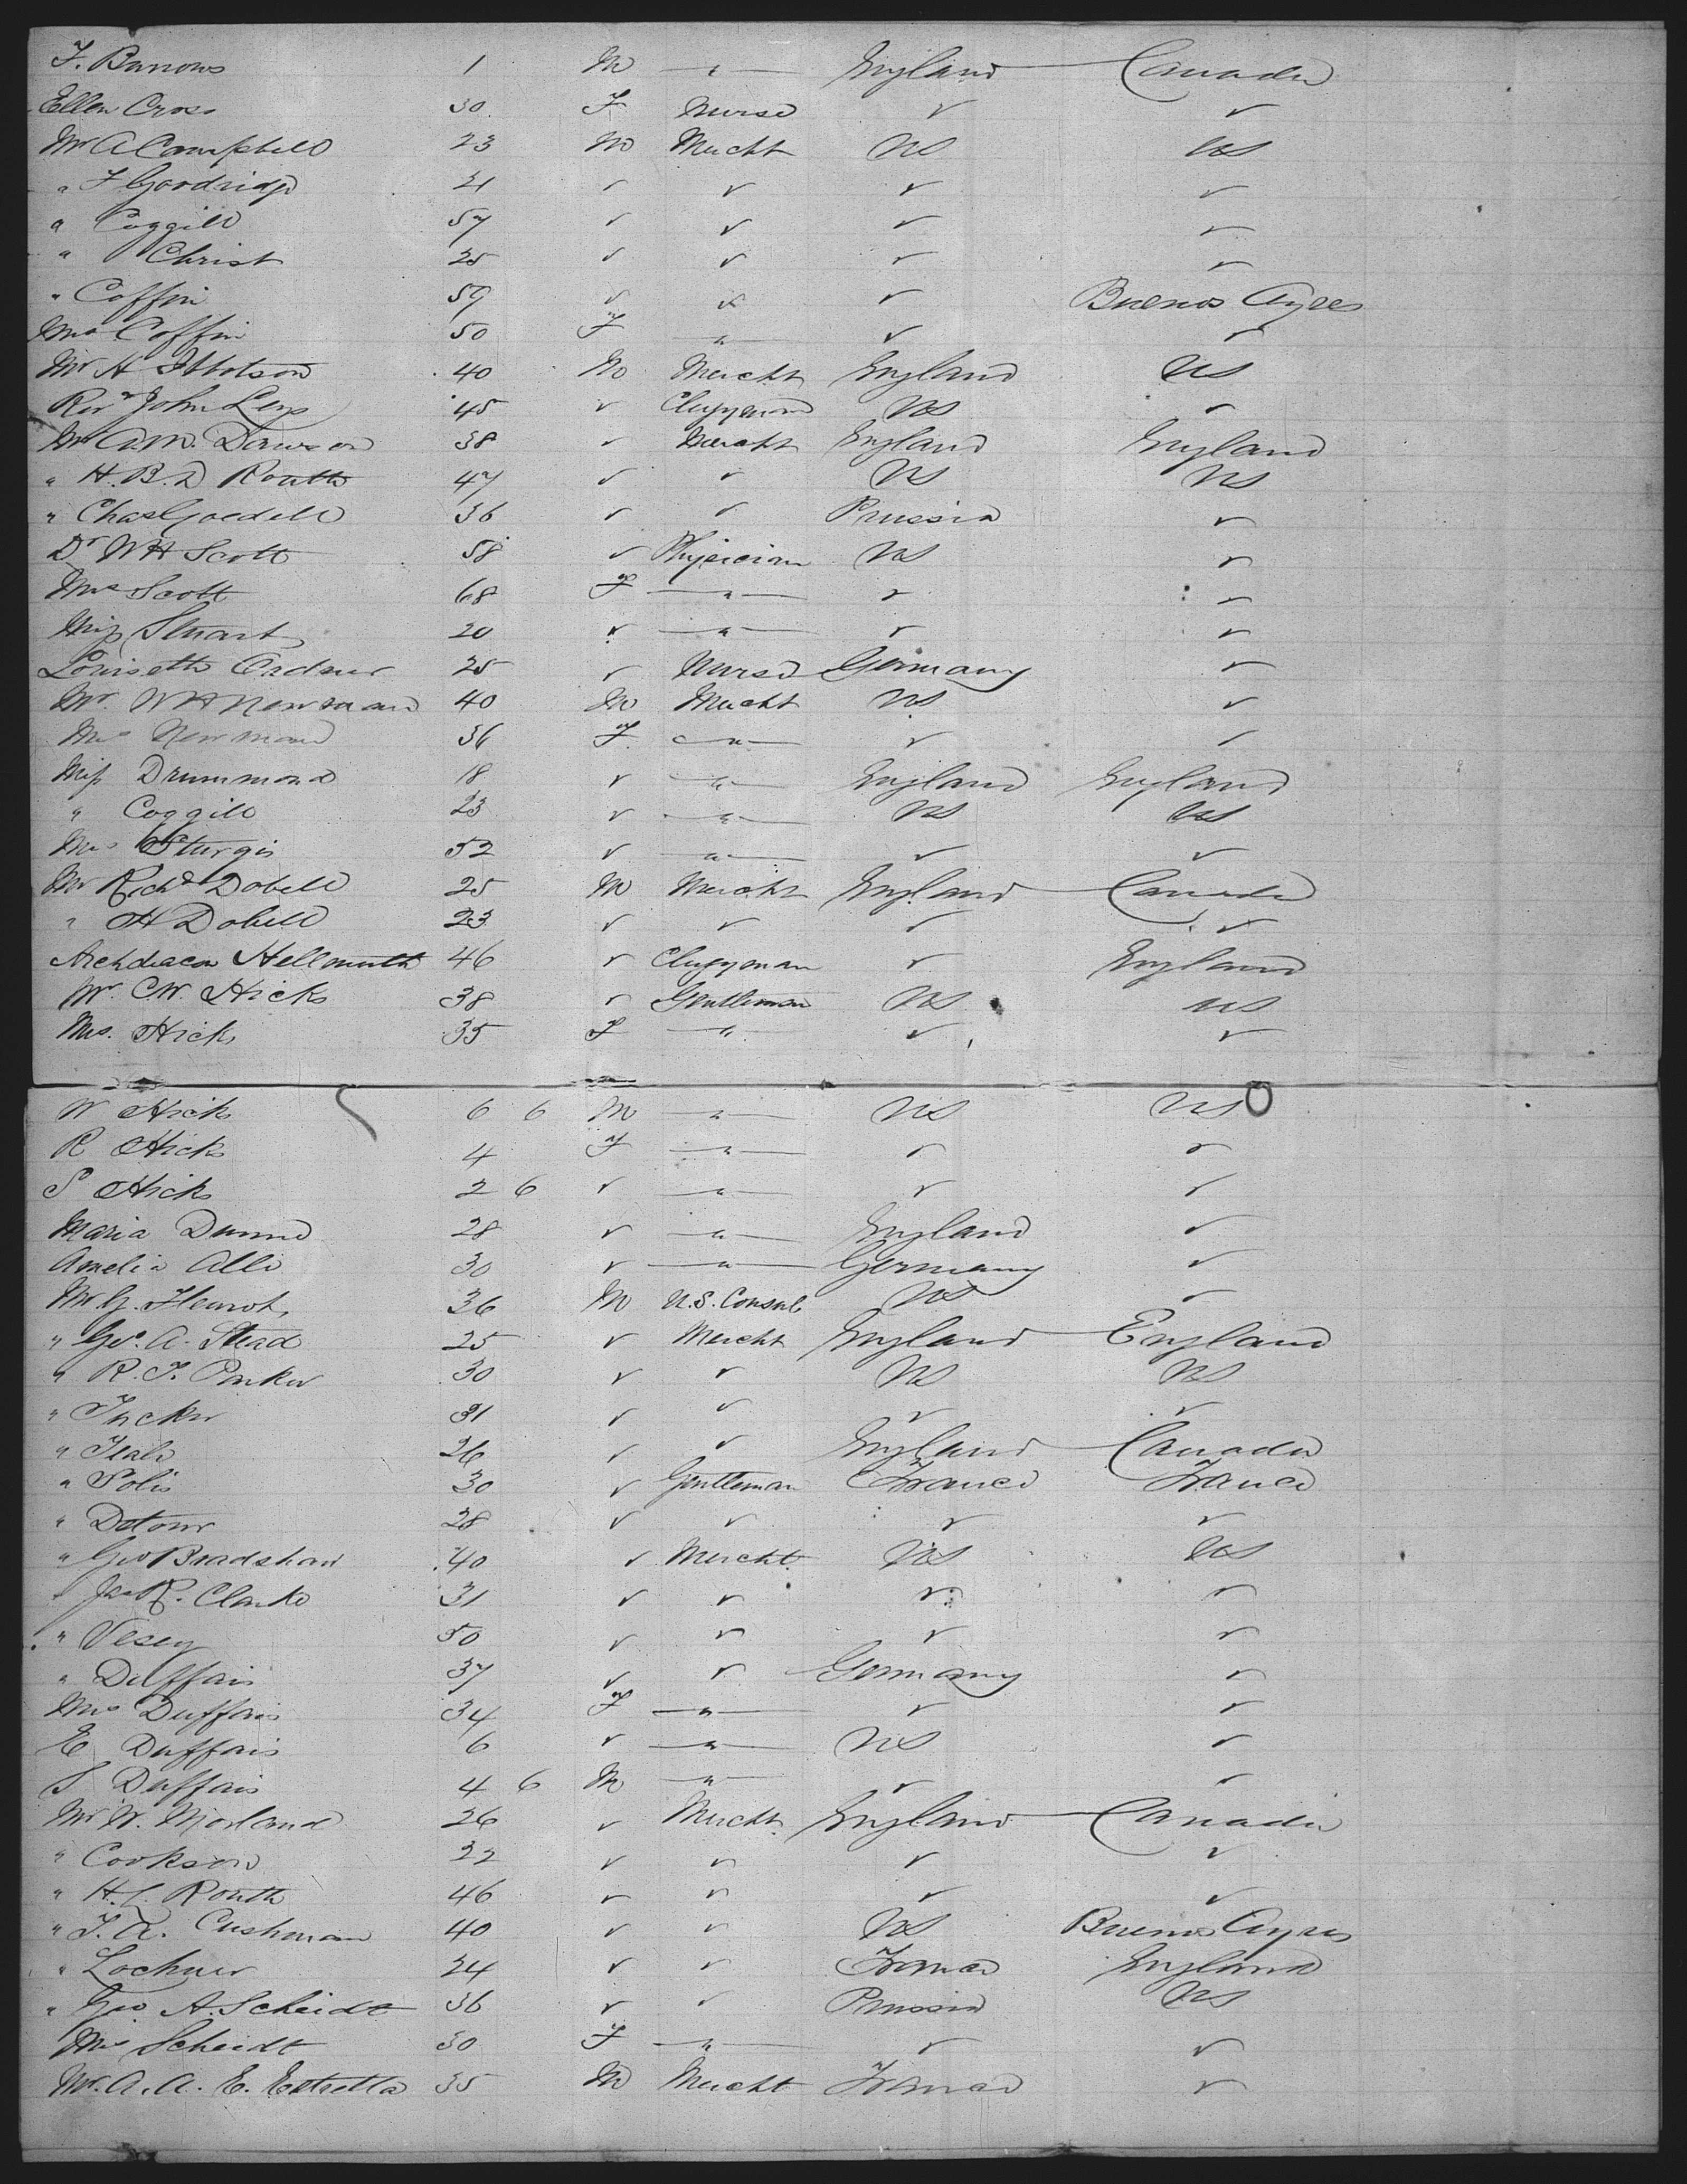 F. Barrows 1 M " England Canada
Ellen Cross 30 F Nurse ✓ ✓
Mr A Campbell 23 M Mercht US US
" F Goodridge 21 ✓ ✓ ✓ ✓
" Coggill 57 ✓ ✓ ✓ ✓
" Christ 25 ✓ ✓ ✓ ✓
" Coffin 59 ✓ ✓ ✓ Buenos Ayres
Mrs Coffin 50 F " ✓ ✓
Mr H Ibbotson 40 M Mercht England US
Revd John Leys 45 ✓ Clergyman US ✓
Mr A.M. Dawson 38 ✓ Mercht England England
" H.B.D Routh 47 ✓ ✓ US US
" Chas Goedell 36 ✓ ✓ Prussia ✓
Dr WH Scott 58 ✓ Physician US ✓
Mrs Scott 68 F " ✓ ✓
Miss Stuart 20 ✓ " ✓ ✓
Louiseth 25 ✓ Nurse Germany ✓
Mr. WH Newman 40 M Mercht US ✓
Mrs Newman 36 F " ✓ ✓
Miss Drummond 18 ✓ " England England
" Coggill 23 ✓ " US US
Mrs Sturgis 52 ✓ " ✓ ✓
Mr Richd Dobell 25 M Mercht England Canada
" H Dobell 23 ✓ ✓ ✓ ✓
Archdeacon Hellmuth 46 ✓ Clergyman ✓ England
Mr. CW. Hicks 38 ✓ Gentleman US US
Mrs. Hicks 35 F " ✓ ✓
W Hicks 6 6 M " US US
R Hicks 4 F " ✓ ✓
S Hicks 2 6 ✓ " ✓ ✓
Maria Dunne 28 ✓ " England ✓
Amelia Alle 30 ✓ " Germany ✓
Mr G. 36 M U.S. Consul US ✓
" Geo. A. Stead 25 ✓ Mercht England England
" R. F. Parker 30 ✓ ✓ US US
" Tucker 31 ✓ ✓ ✓ ✓
" 26 ✓ ✓ England Canada
" Solis 30 ✓ Gentleman France France
" Detour 28 ✓ ✓ ✓ ✓
" Geo Bradshaw 40 ✓ Mercht. US US
" Jas R. Clarke 31 ✓ ✓ ✓ ✓
" Vesey 50 ✓ ✓ ✓ ✓
" Duffais 37 ✓ ✓ Germany ✓
Mrs Duffais 34 F " ✓ ✓
E Duffais 6 ✓ " US ✓
S Duffais 4 6 M " ✓ ✓
Mr W. Morland 26 ✓ Mercht. England Canada
" Cookson 22 ✓ ✓ ✓ ✓
" H.L. Routh 46 ✓ ✓ ✓ ✓
" J.R. Cushman 40 ✓ ✓ US Buenos Ayres
" Lochner 24 ✓ ✓ France England
" Geo A. Scheidt 36 ✓ ✓ Prussia US
Mrs Scheidt 30 F " ✓ ✓
Mr. A. A. E. Estrella 35 M Mercht France ✓